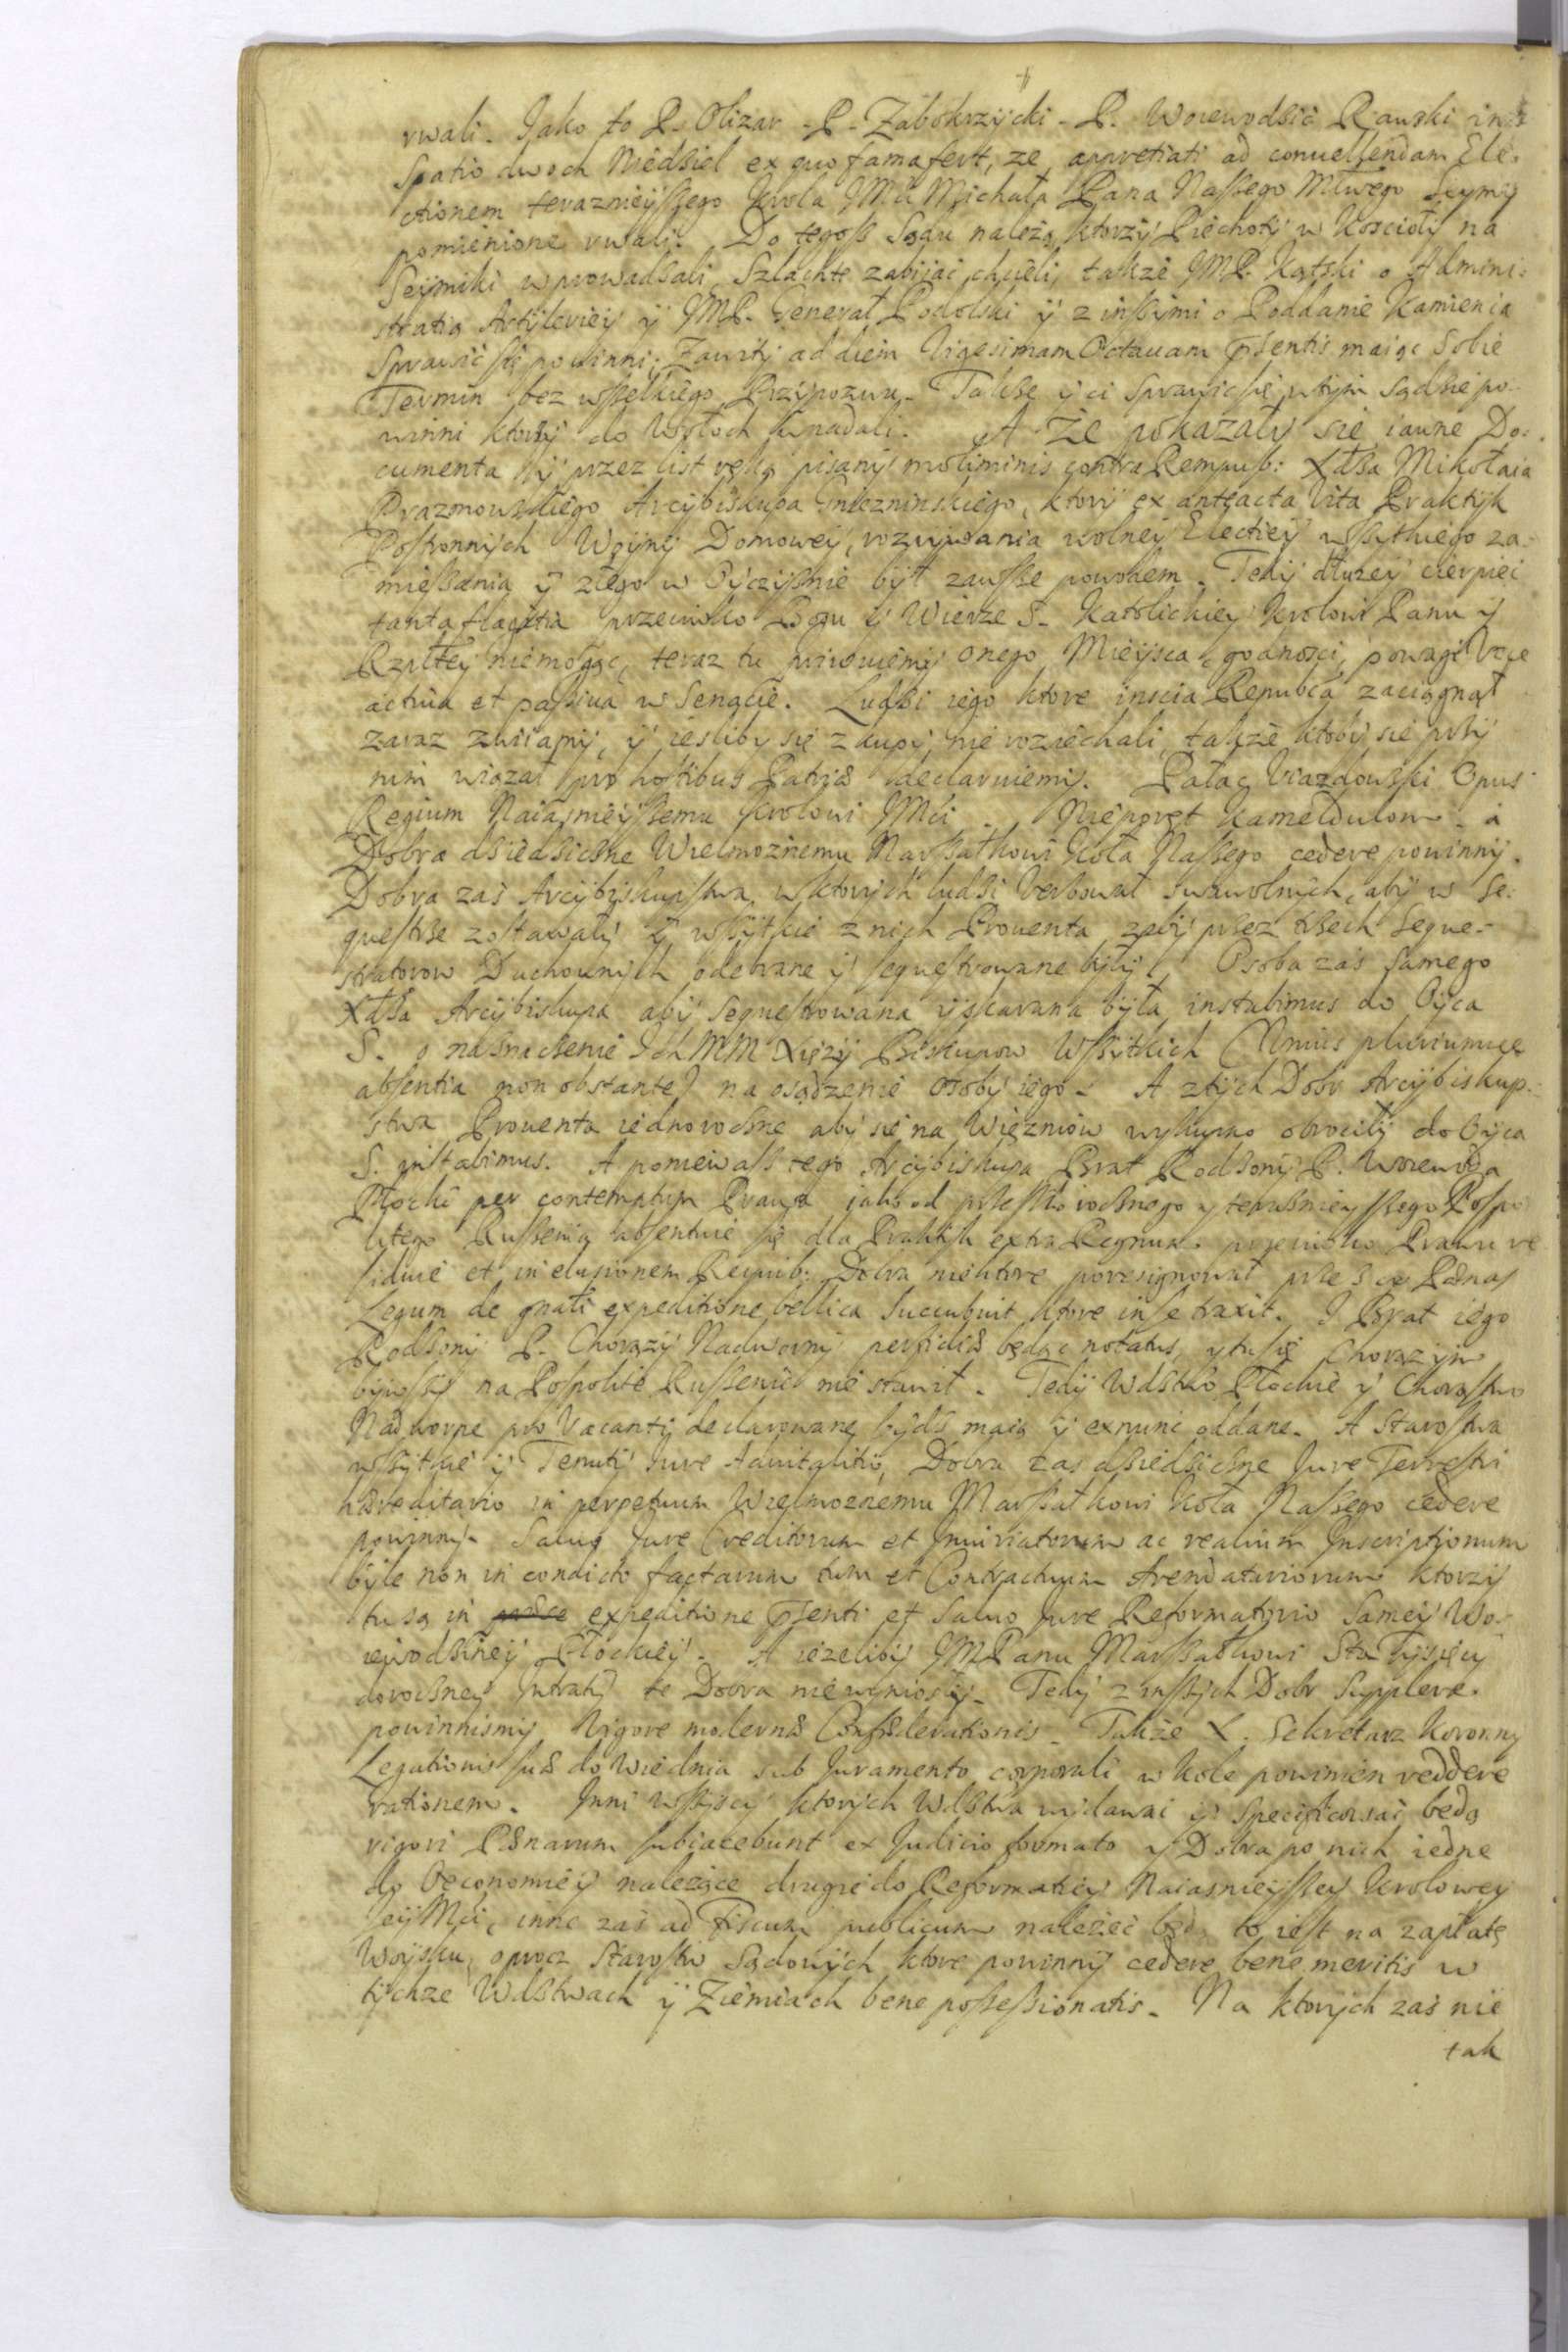 rwali. Jako to P. Olizar - P. Zabokrzycki - P. Woiewodsic Rawski infra
Spatio dwoch Niedsiel ex quo fama fert, ze appretiati ad conuellendam Ele-
ctionem terazniẏszego krola JMci Michała Pana Naszego Młwego Seymy
pomienione rwali. Do tegosz Sądu należą ktorzy Piechoty w Koscioły na
Seymiki wprowadsali Szlachte zabijac chcieli, także JMP. Kątski o Admini-
stratią Artylerieẏ ẏ JMP. Generał Podolski ẏ z inszymi o Poddanie Kamienca
Sprawic się powinni, Zawitẏ ad diem Vigesimam Octauam psentis maiąc sobie
Termin bez wszelkiego Przypozwu. Takse ẏ ci sprawic się w tẏm sądsie po-
winni ktorzẏ do Wołoch wpadali. A że pokazały się iawne Do-
cumenta ẏ przez list ręką pisanẏ moliminis contra Rempub: Xdsa Mikołaia
Prazmowskiego Arcybiskupa Gniezninskiego, ktorẏ ex anteacta Vita Praktyk
Postronnych Woẏnẏ Domoweẏ, rozrywania wolneẏ Electieẏ wszytkiego za-
mieszania ẏ złego w Oẏczẏsnie bẏł zawsze powodem. Tedẏ dłużeẏ cierpiec
tanta flagitia przeciwko Bogu ẏ Wierze S. Katolickieẏ krolowi Panu ẏ
Rzpltey niemogąc, teraz tu priwuiemẏ onego Mieysca, godnosci, powagi Voce
actiua et passiua w Senacie. Ludsi iego ktore inscia Republca zaciągnął
zaraz zwiiamẏ, ẏ iesliby się z kupẏ nie roziechali, także ktobẏ się przẏ
nim wiązał pro hostibus Patriæ declaruiemẏ. Pałac Viazdowski Opus
Regium Naiasnieẏszemu krolowi JMci. Nieporęt Kamedułom. a
Dobra dsiedsicsne Wielmożnemu Marszałkowi Koła Naszego cedere powinnẏ.
Dobra zas Arcybiskupstwa w ktorych ludsi Verbował swawolnych, abẏ w se-
questrse zostawałẏ ẏ wszytkie z nich Prouenta zebẏ przez trsech Seque-
stratorow Duchownych odebrane ẏ sequestrowane bẏłẏ. Osoba zas samego
Xdsa Arcybiskupa abẏ sequestrowana ẏ skarana bẏła, instabimus do Oẏca
S. o nasnacsenie Ich MM Xięzẏ Biskupow Wszytkich (Unius pluriumue
absentia non obstante) na osądzenie osobẏ iego. A z tẏch Dobr Arcybiskup-
stwa Prouenta iednorocsne abẏ się na Więzniow wykupno obrociłẏ do Oẏca
S. instabimus. A poniewasz tego Arcybiskupa Brat Rodsonẏ P. Woiewoda
Płocki per contemptum Prawa iako od przeszłorocsnego ẏ terasnieẏszego Pospo
litego Russenia absentuie się dla Praktẏk extra Regnum przeciwko Prawu re
siduie et in elusionem Reipub: Dobra niektore poresignował przes co Pænas
Legum de gnali expeditione bellica succubuit ktore in se traxit. I Brat iego
Rodsonẏ P. Chorązẏ Nadwornẏ perfidiæ będąc notatus, ẏ tu się Chorązym
bẏwszẏ na Pospolite Russenie nie stawił. Tedẏ Wdstwo Płockie ẏ Chorąstwo
Nadworne pro Vacanti declarowane bẏdz maią ẏ exnunc oddane. A Starostwa
wszytkie ẏ Tenutẏ Jure Aduitalitio, Dobra zas dsiedsicsne Jure Terrestri
hæreditario in perpetuum Wielmoznemu Marszałkowi Koła Naszego cedere
powinnẏ. Saluo Jure Creditorum et Iniuriatorum ac realium Inscriptionum
bẏle non in condicto factarum tum et Contractuum Arendatariorum ktorzẏ
tu są in expeditione psenti et saluo Jure Reformatorio Sameẏ Wo-
iewodsineẏ Płockieẏ. A iezelibẏ JMPanu Marszałkowi Sta Tẏsięcẏ
dorocsneẏ Intratẏ te Dobra niewẏniosłẏ. Tedẏ z inszych Dobr supplere
powinnismẏ Vigore modernæ Confæderationis. Także X. Sekretarz Koronnẏ
Legationis suæ do Wiednia sub Juramento corporali w Kole powinien reddere
rationem. Inni wszẏscẏ ktorych Wdstwa wẏdawai ẏ specificowac będą
rigori Pænarum subiacebunt ex Judicio formato ẏ Dobra po nich iedne
do Oeconomieẏ należące drugie do Reformatieẏ Naiasnieẏszeẏ krolowey
JeẏMci, inne zas ad Fiscum publicum należeć będą to iest na zapłatę
Woẏsku, oprocz Starostw Sądowych ktore powinnẏ cedere bene meritis w
tẏchze Wdstwach ẏ Ziemiach bene possessionatis. Na ktorych zas nie
tak